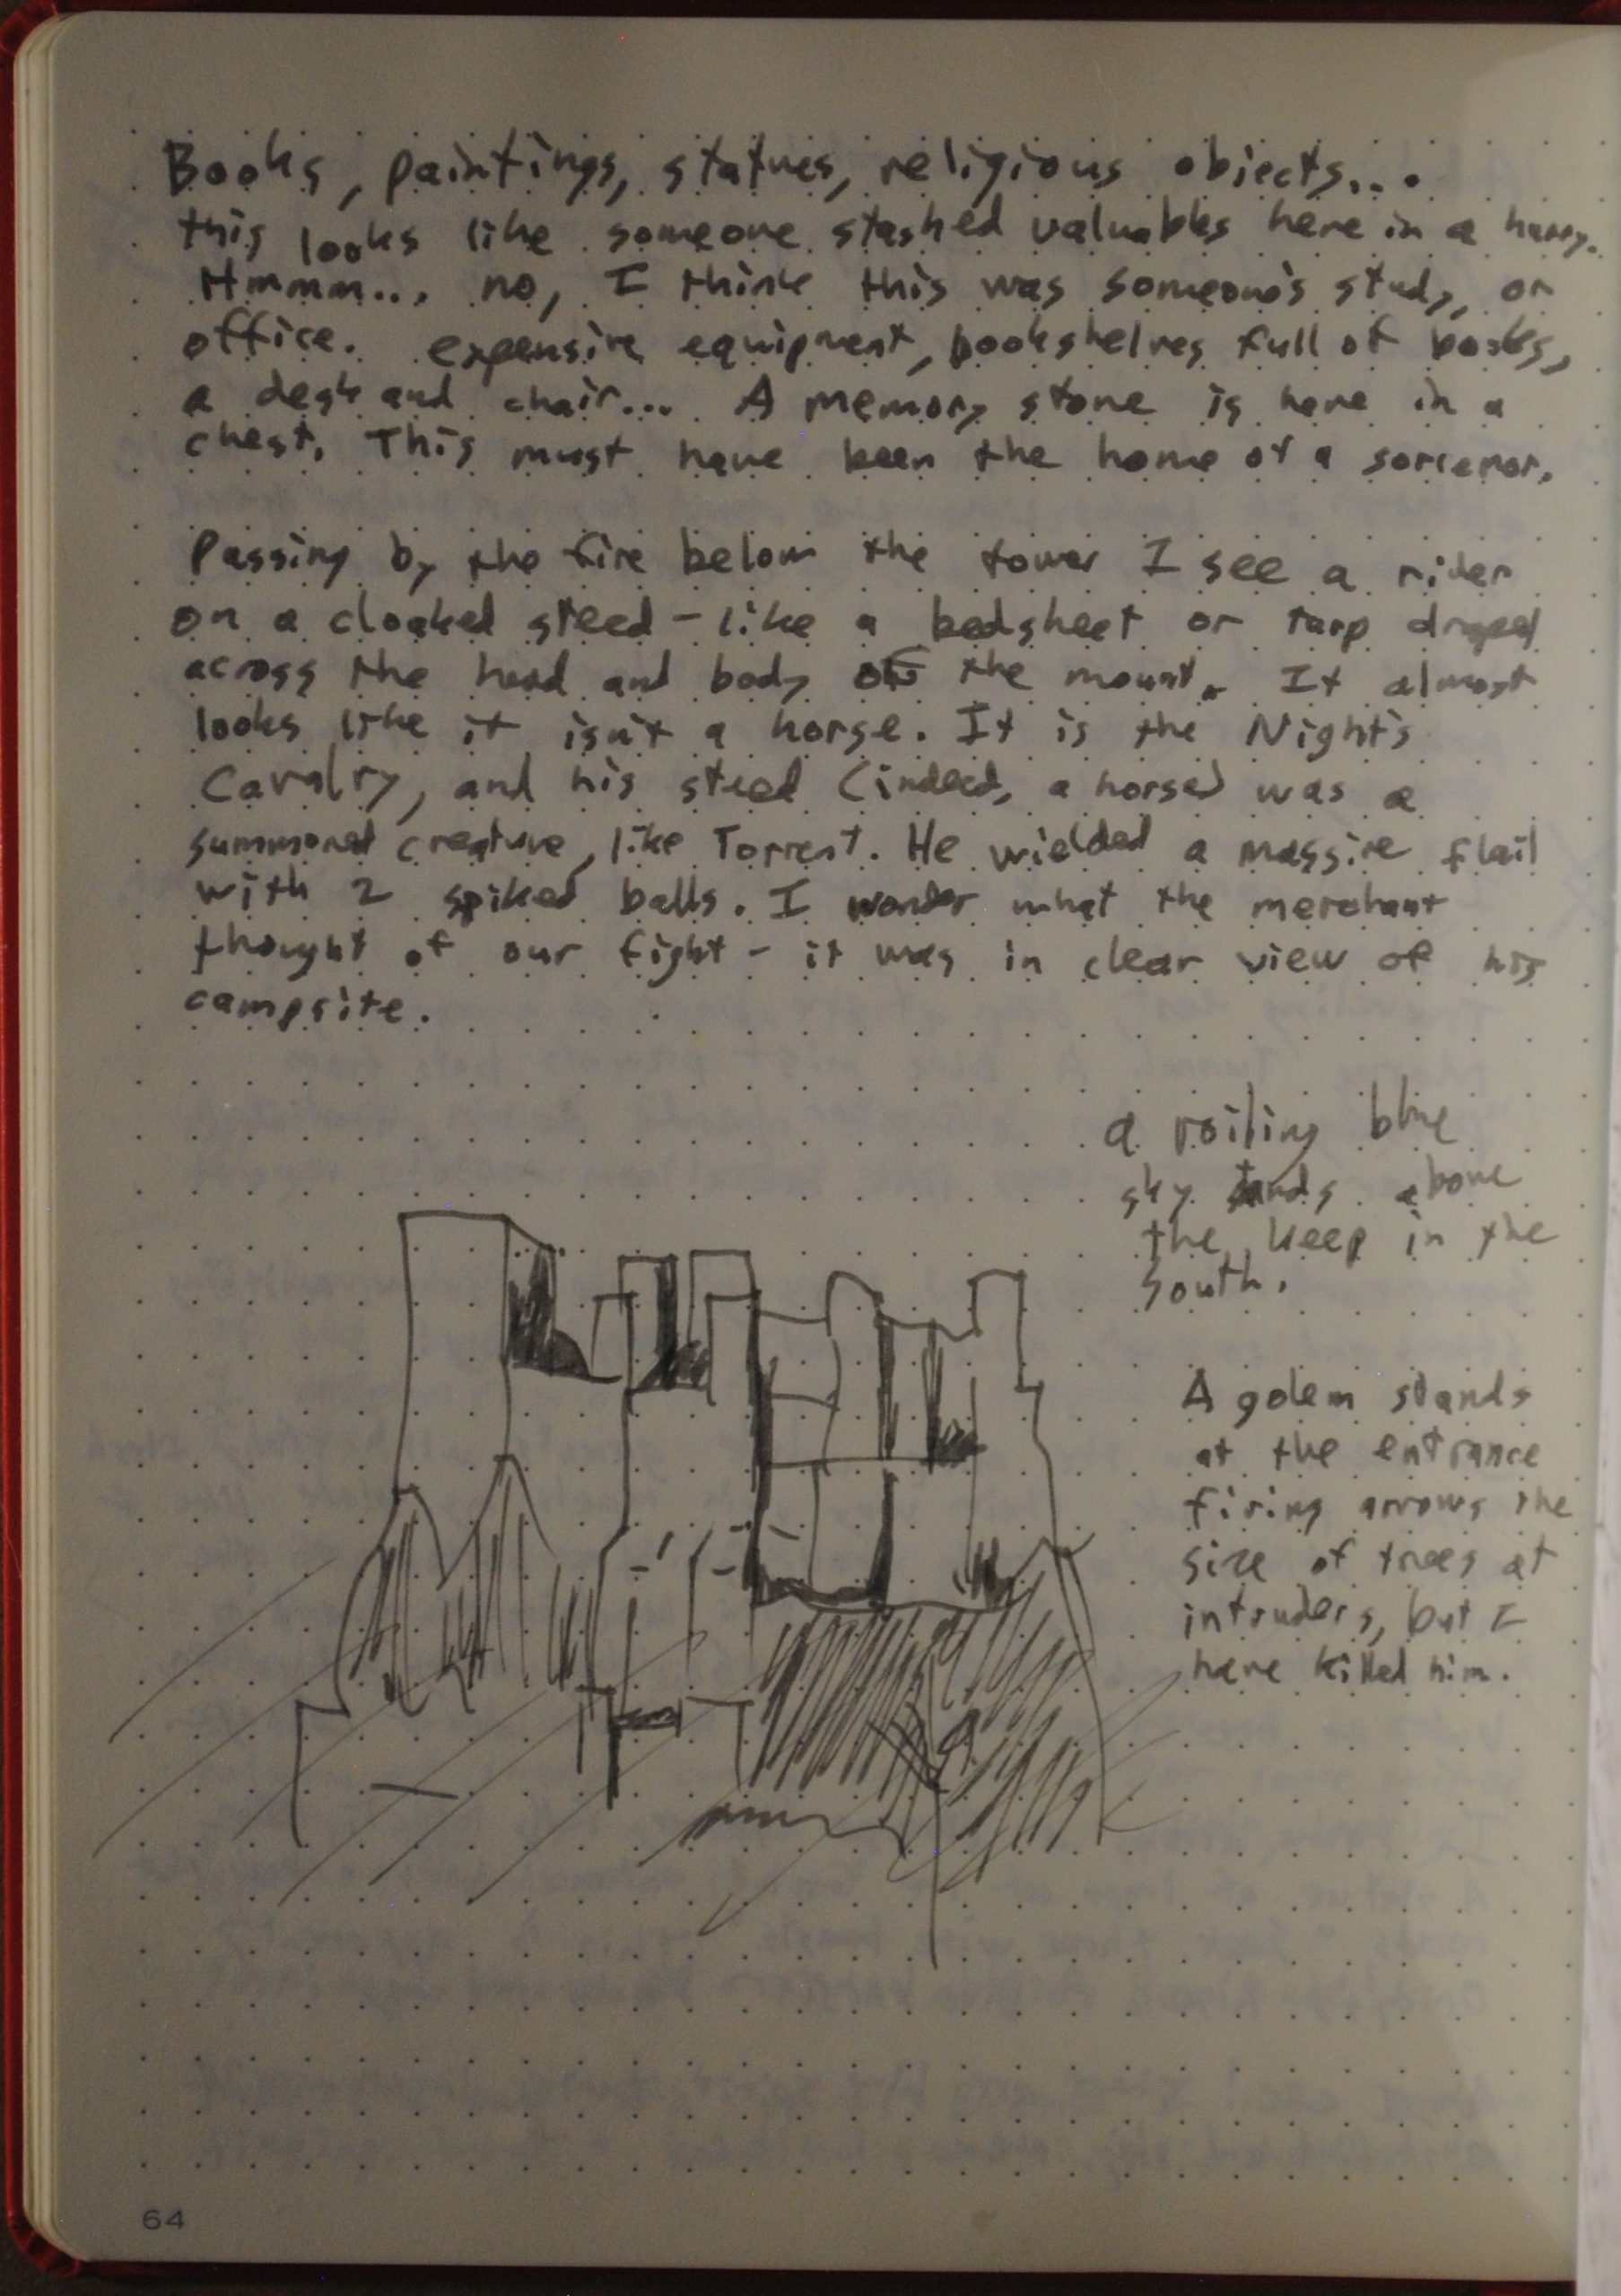 Books, paintings, statues, religious objects...
this looks like someone stashed valuables here in a hurry.
Hmmm... no, I think this was someone's study, or
office. expensive equipment, bookshelves full of books,
a desk and chair... A memory stone is here in a
chest. This must have been the home of a sorceror.
Passing by the fire below the tower I see a rider
on a cloaked steed - like a bedsheet or tarp draped
across the head and body of the mount. It almost
looks like it isn't a horse. It is the Night's
Cavalry, and his steed (indeed, a horse) was a
summoned creature, like Torrent. He wielded a massive flail
with 2 spiked balls. I wonder what the merchant
thought of our fight - it was in clear view of his
campsite.
a roiling blue
sky above
the keep in the
South.
A golem stands
at the entrance
firing arrows the
size of trees at
intruders, but I
have killed him.
64